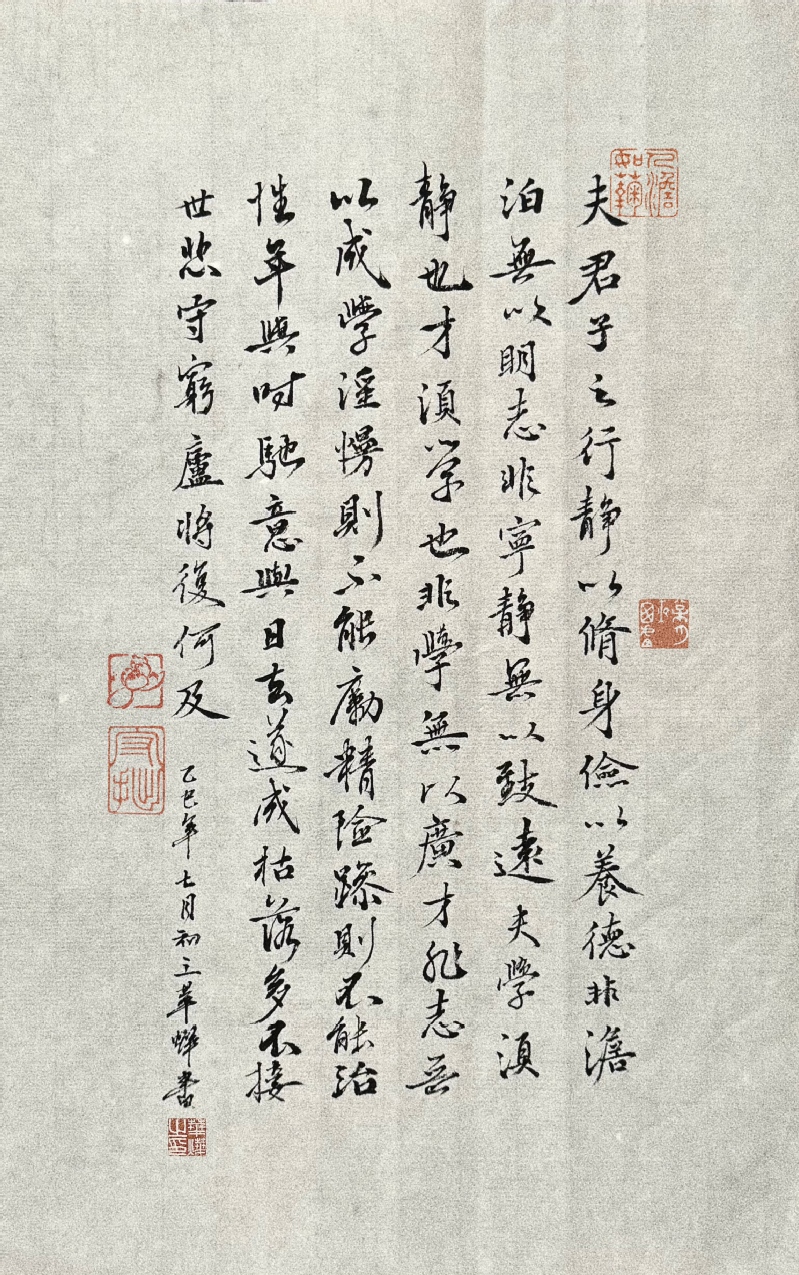 夫君子之行静以脩身儉以養德非澹
泊無以明志非寧静無以致遠夫學須
静也才須学也非學無以廣才非志無
以成學淫慢則不能勵精險躁則不能治
性年與时馳意與日去遂成枯落多不接
世悲守窮廬將復何及
乙巳年七月初三華燁書
人澹如菊
守拙
華燁之印